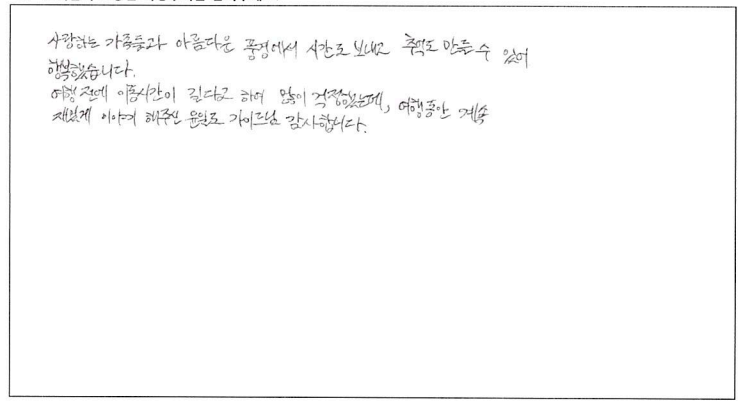 사랑하는 가족들과 아름다운 풍경에서 시간도 보내고 추억도 만들 수 있어
행복했습니다.
여행 전에 이동시간이 길다고 하여 많이 걱정했는데, 여행동안 계속
재밌게 이야기 해주신 윤일로 가이드님 감사합니다.